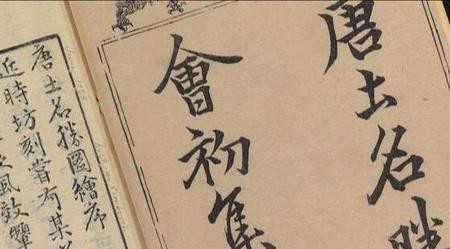 唐土名勝
會初集
唐土名勝圖繪序
近時坊刻嘗有某
風效顰